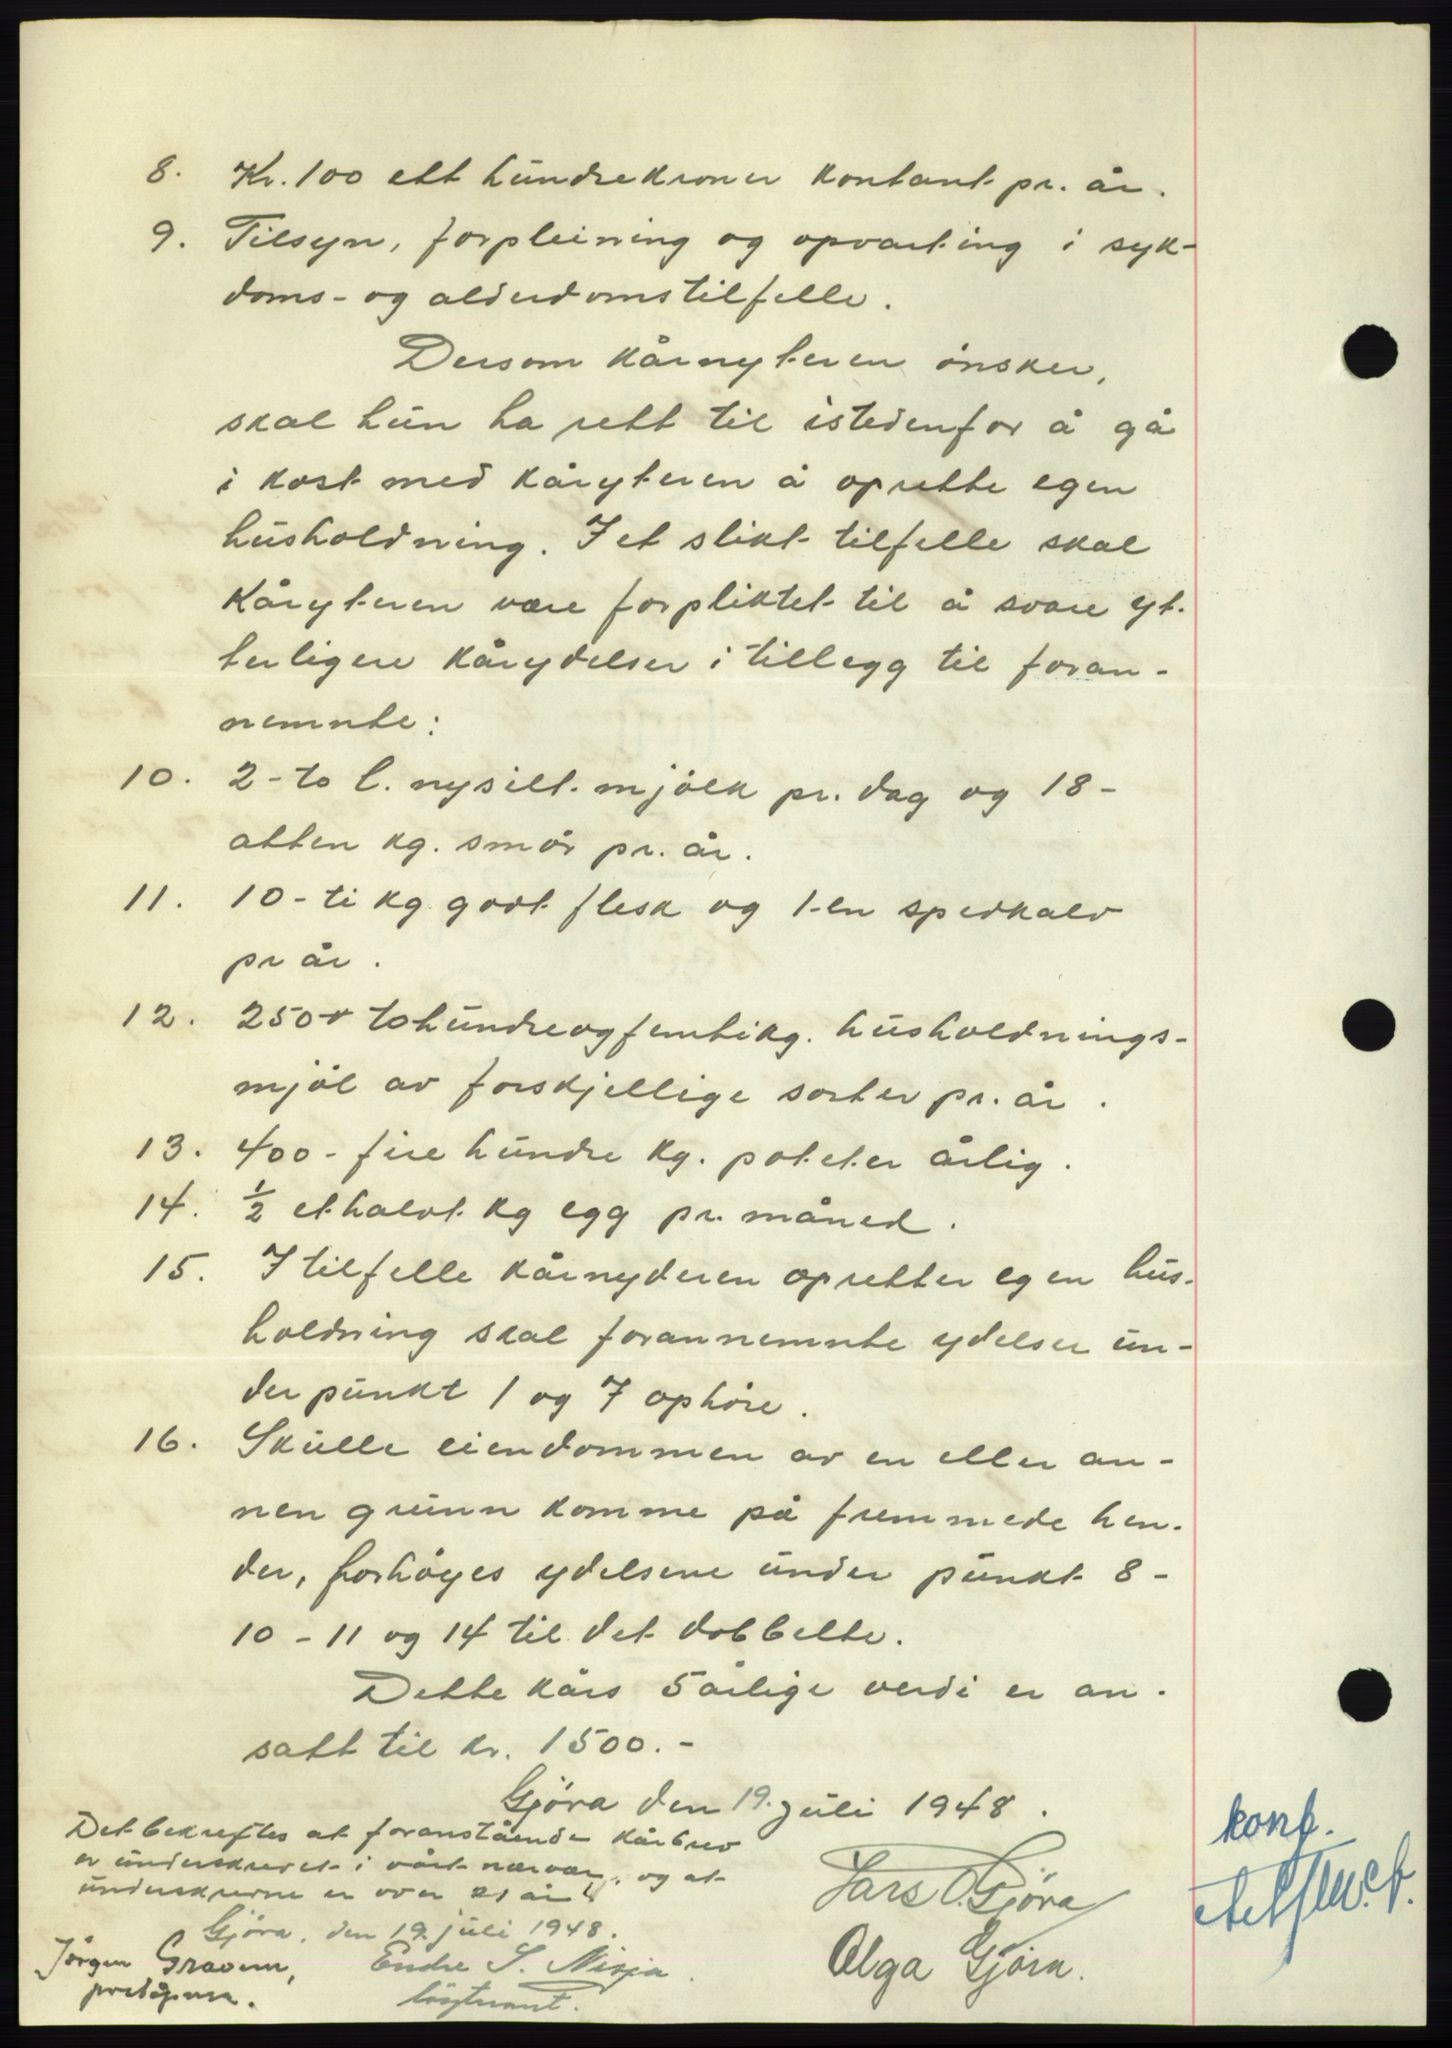 8. Kr. 100 ett hundrekroner kontant pr. år.
9. Tilsyn, forpleining og opvarting i syk-
doms- og alderdomstilfelle.
Dersom kårnyteren ønsker,
skal hun ha rett til istedenfor å gå
i kost med kåryteren å oprette egen
husholdning. I et slikt tilfelle skal
kåryteren være forpliktet til å svare yt-
terligere kårydelser i tillegg til foran-
nemnte:
10. 2-to l. nysilt mjølk pr. dag og 18-
atten kg. smør pr. år.
11. 10-ti kg godt flesk og 1-en spedkalv
pr år.
12. 250-tohundreogfemtikg. husholdnings-
mjøl av forskjellige sorter pr. år.
13. 400-fire hundre kg. poteter årlig.
14. ½ et halvt kg egg pr. måned.
15. I tilfelle kårnyderen opretter egen hus-
holdning skal forannemnte ydelser un-
der punkt 1 og 7 ophøre.
16. Skulle eiendommen av en eller an-
nen grunn komme på fremmede hen-
der, forhøyes ydelsene under punkt 8-
10-11 og 14 til det dobbelte.
Dette kårs 5 årlige verdi er an-
satt til kr. 1500.-
Gjøra den 19. juli 1948.
Det bekreftes at foranstående kårbrev
er underskrevet i vårt nærvær, og at
underskriverne er over 21 år
Gjøra, den 19. juli 1948.
Jørgen Gravem,
Endre S.
Lars O. Gjøra
Olga Gjøra.
konf.